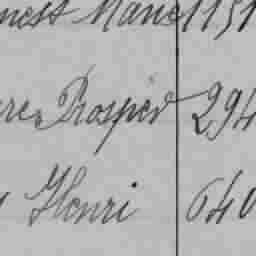 Marie 1151
Prosper 294
Henri 640